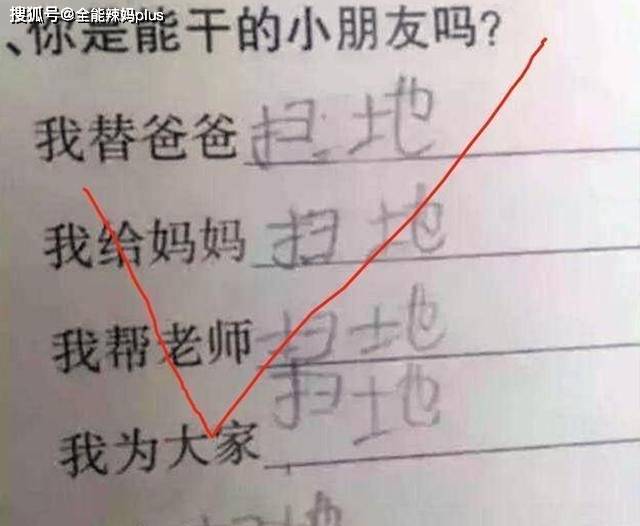 搜狐号@全能辣妈plus
、你是能干的小朋友吗?
我替爸爸扫地
我给妈妈扫地
我帮老师扫地
我为大家扫地